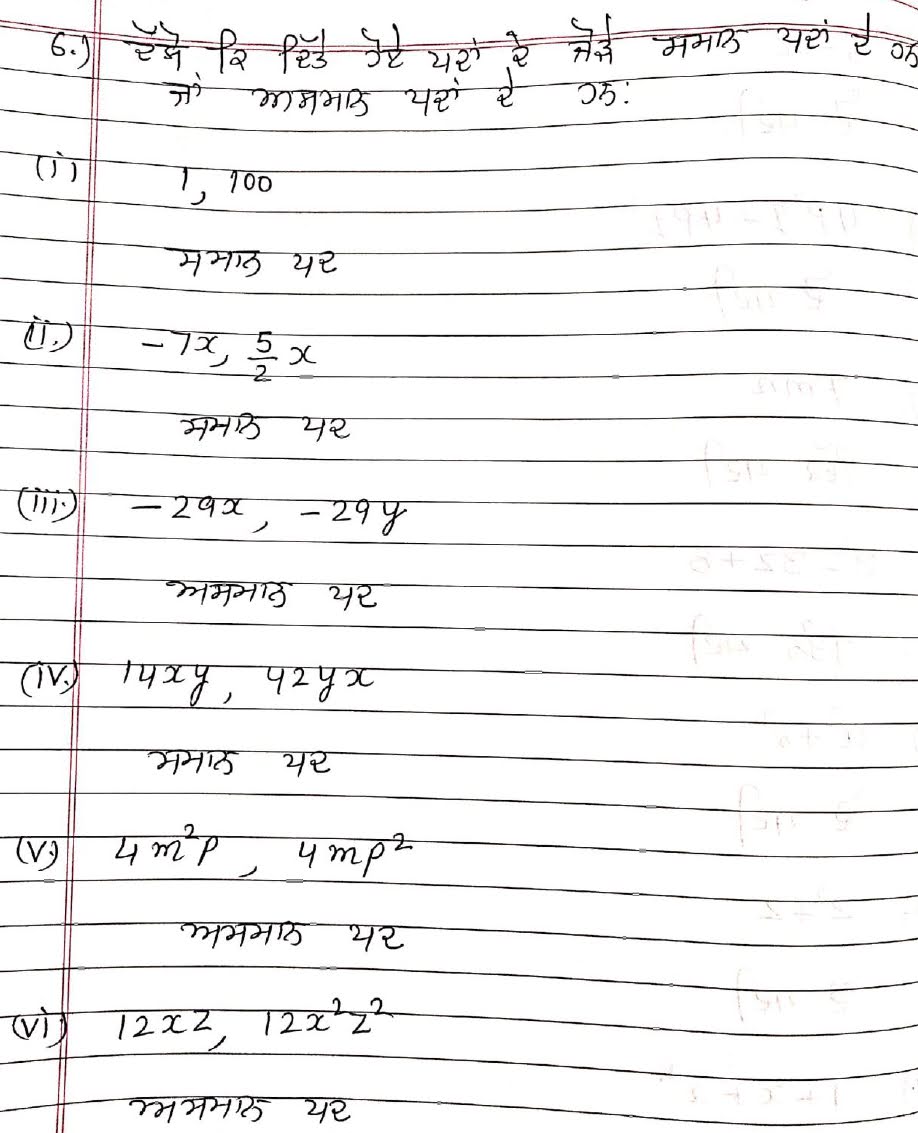 6.) ਦੱਸੋ ਕਿ ਦਿੱਤੇ ਹੋਏ ਪਦਾਂ ਦੇ ਜੋੜੇ ਸਮਾਨ ਪਦਾਂ ਦੇ ਹਨ
ਜਾਂ ਅਸਮਾਨ ਪਦਾਂ ਦੇ ਹਨ:
(i) 1, 100
ਸਮਾਨ ਪਦ
(ii.) -7x, 5/2 x
ਸਮਾਨ ਪਦ
(iii.) -29x, -29y
ਅਸਮਾਨ ਪਦ
(iv.) 14xy, 42yx
ਸਮਾਨ ਪਦ
(v.) 4m²p, 4mp²
ਅਸਮਾਨ ਪਦ
(vi) 12xz, 12x²z²
ਅਸਮਾਨ ਪਦ